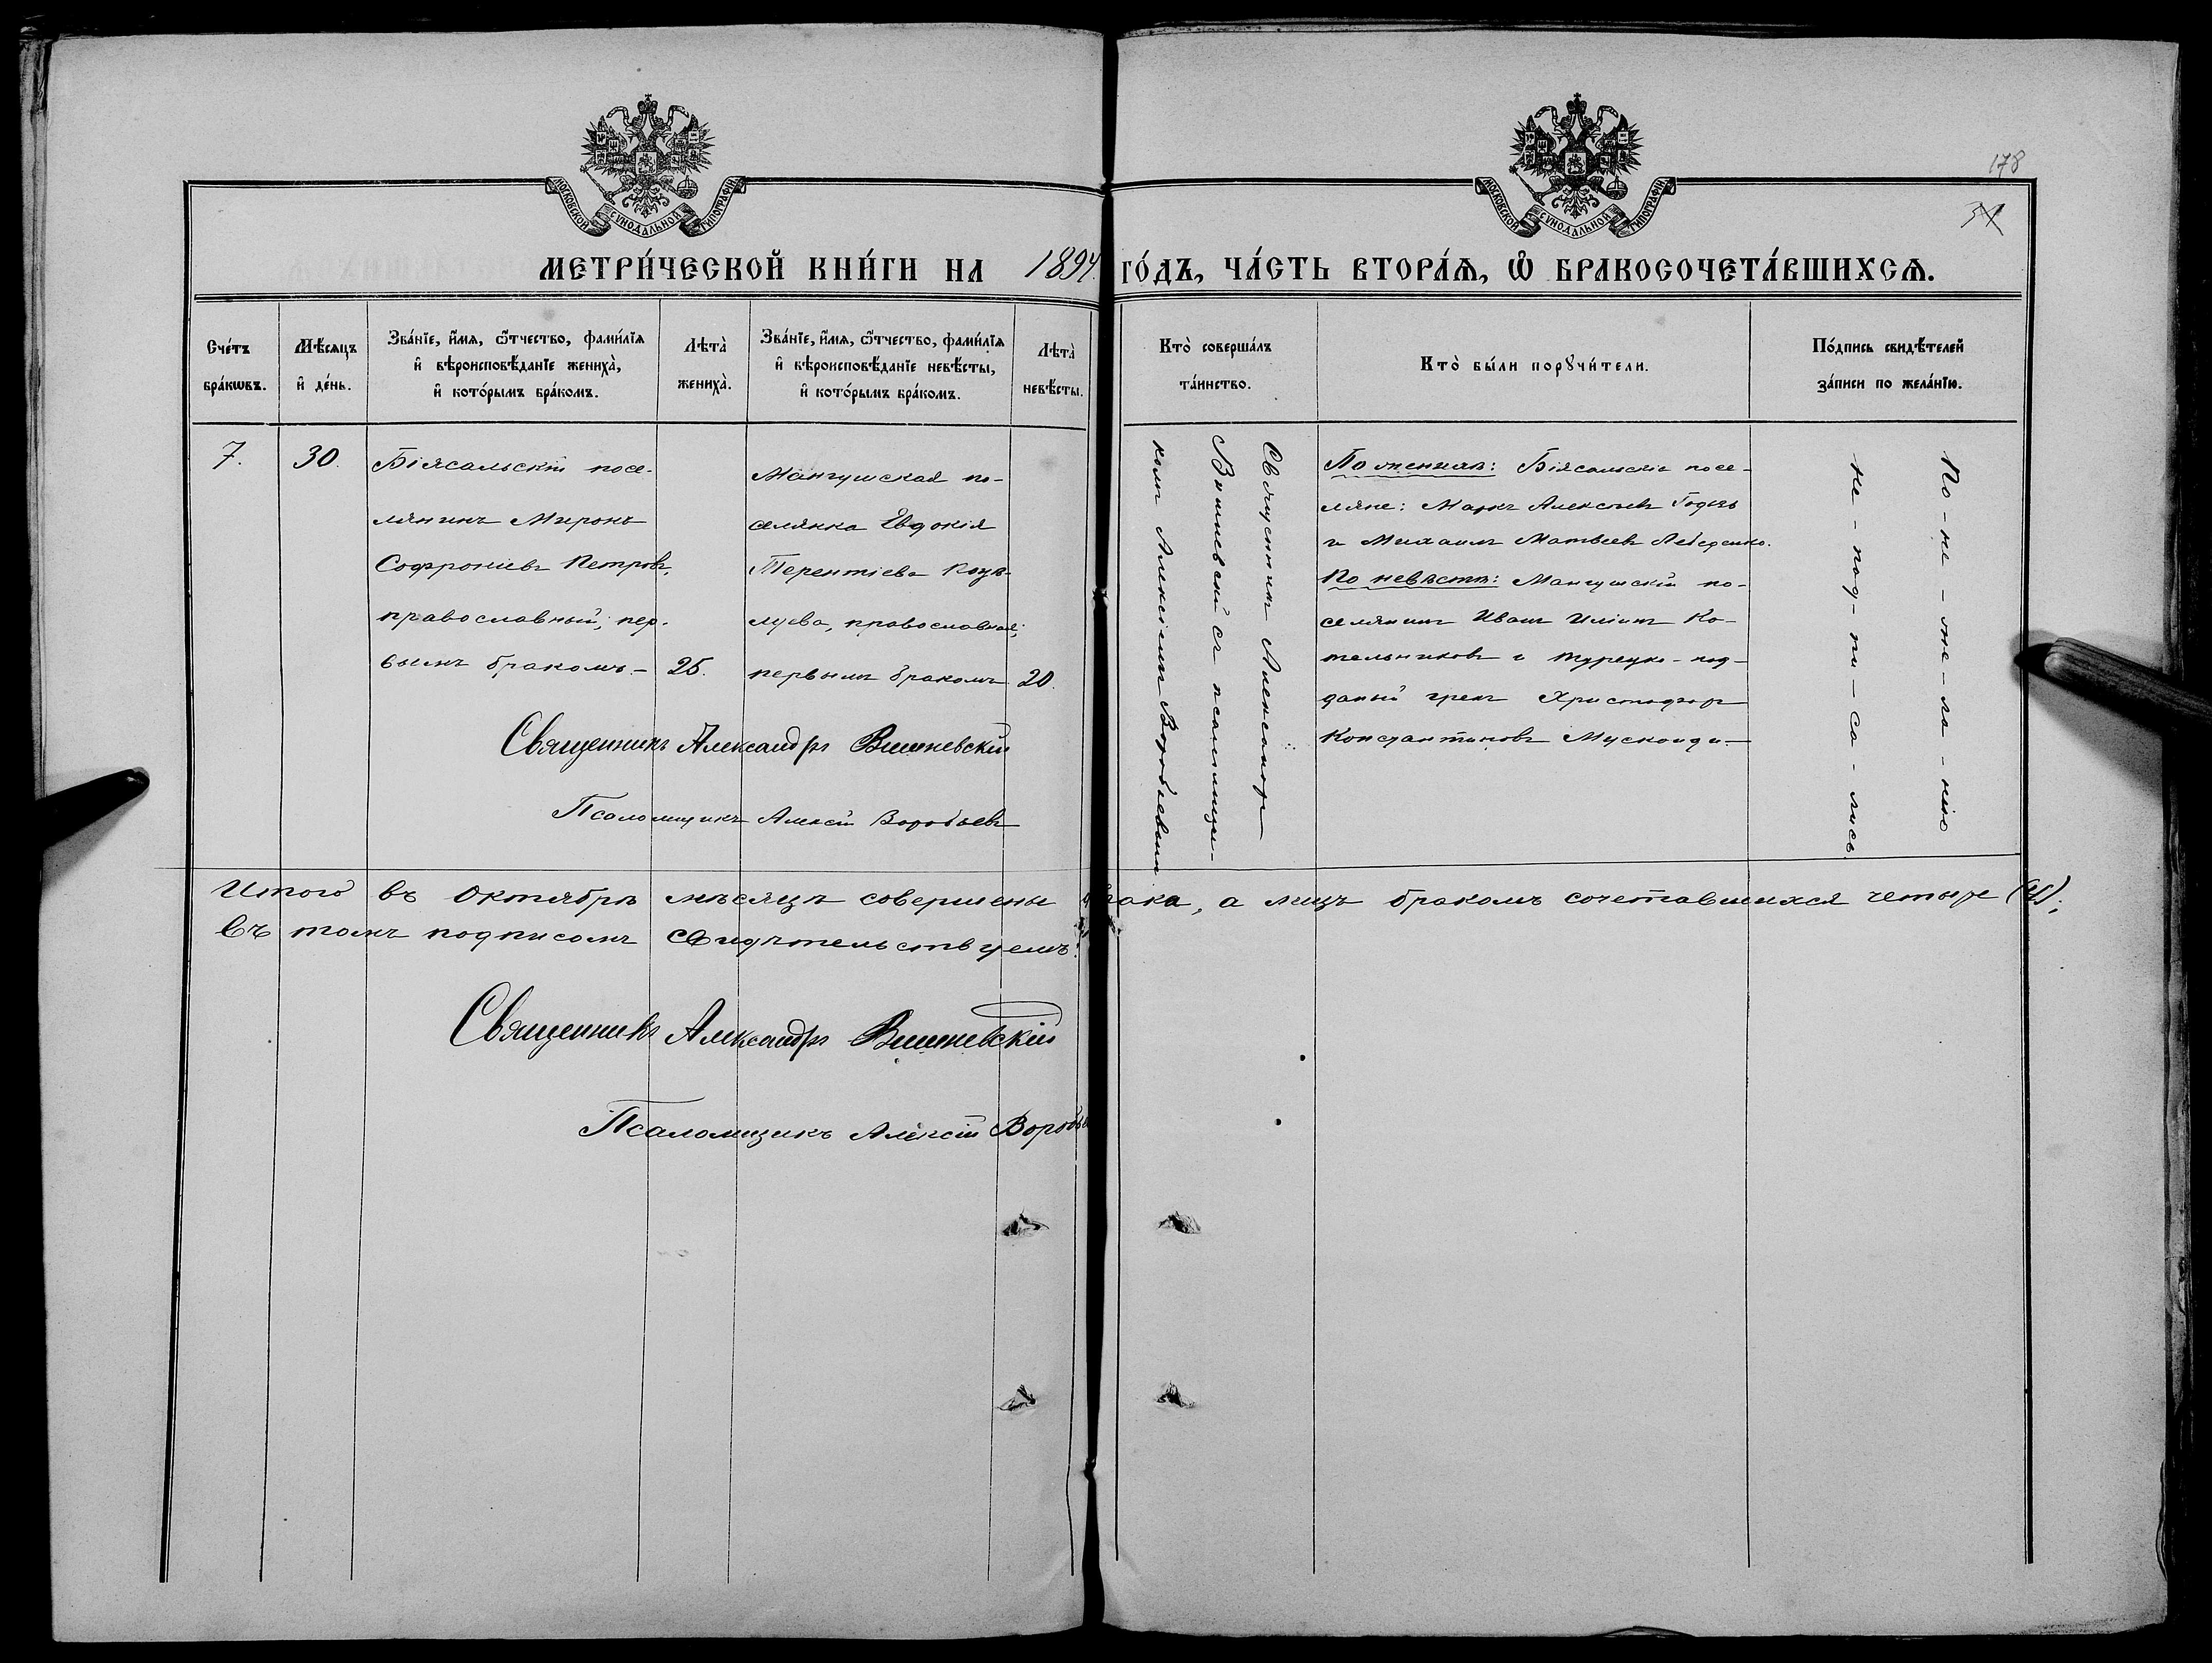 МОСКОВСКОЙ СѴНОДАЛЬНОЙ ТИПОГРАФІИ
МОСКОВСКОЙ СѴНОДАЛЬНОЙ ТИПОГРАФІИ
178
МЕТРИ́ЧЕСКОЙ КНИ́ГИ НА 1894. ГО́ДЪ, ЧА́СТЬ ВТОРА́Ѧ, Ѽ БРАКОСОЧЕТА́ВШИХСѦ.
Сче́тъ
бра́кѡвъ.
Мѣ́сяцъ
и҆ де́нь.
Зва́нїе, и҆́мя, ѻ҆́тчество, фами́лїя
и҆ вѣроисповѣ́данїе женихà,
и҆ кото́рымъ бра́комъ.
Лѣтà
женихà.
Зва́нїе, и҆́мя, ѻ҆́тчество, фами́лїя
и҆ вѣроисповѣ́данїе невѣ́сты,
и҆ кото́рымъ бра́комъ.
Лѣтà
невѣ́сты.
Ктò соверша́лъ
та́инство.
Ктò бы́ли порꙋчи́тели.
По́дпись свидѣ́телей
за́писи по жела́нїю.
7.
30.
Біясальскій посе-
лянинъ Миронъ
Софроніевъ Петровъ,
православный; пер-
вымъ бракомъ.-
25.
Мангушская по-
селянка Евдокія
Терентіева
православная;
первымъ бракомъ
20.
Священникъ Александръ
Вишневскій съ псаломщи-
комъ Алексіемъ Воробьевымъ
По женихѣ: Біясальскіе посе-
ляне: Маркъ Алексѣевъ
и Михаилъ Матвѣевъ Лебеденко.
По невѣстѣ: Мангушскій по-
селянинъ Иванъ Иліинъ Ко-
тельниковъ и турецко-под-
даный грекъ Христофоръ
Константиновъ
По - не - же - ла - нію
не - под - пи - са - лись.
Священникъ Александръ Вишневскій
Псаломщикъ Алексій Воробьевъ
Итого въ Октябрѣ мѣсяцѣ совершены брака, а лицъ бракомъ сочетавшихся четыре (4);
въ томъ подписомъ свидѣтельствуемъ:
Священникъ Александръ Вишневскій
Псаломщикъ Алексій Воробье